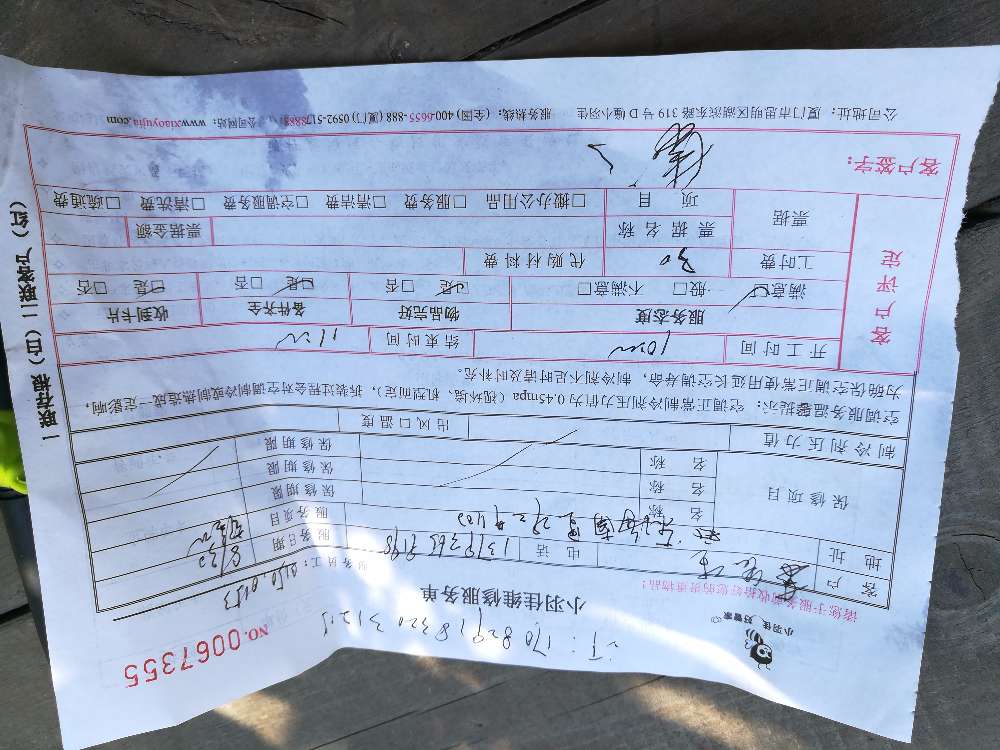 订：170829183203121
NO.0067355
小羽佳 好管家
小羽佳维修服务单
请您于服务前收拾好您的贵重物品！
服务员工：
客户
电话
服务日期 8/30
地址
服务项目
保修项目
名称
保修期限
名称
保修期限
名称
保修期限
制冷剂压力值
出风口温度
空调服务温馨提示：空调正常制冷剂压力值为0.45mpa（视环境、机型而定），拆装过程会对空调制冷或制热造成一定影响，
为确保空调正常使用延长空调寿命，制冷剂不足时请及时补充。
客户评定
开工时间
结束时间
服务态度 物品完好 备件齐全 收到卡片
满意□ 一般□ 不满意□ 是□ 否□ 是□ 否□ 是□ 否□
工时费 30 代购材料费
票据
票据名称 票据金额
项目 □搬办公用品 □服务费 □清洁费 □空调服务费 □清洗费 □疏通费
客户签字：
公司地址：厦门市思明区湖滨东路319号D幢小羽佳 服务热线：(全国) 400-6655-888 (厦门) 0592-5178885 公司网站：www.xiaoyujia.com
一联存根（白）二联客户（红）